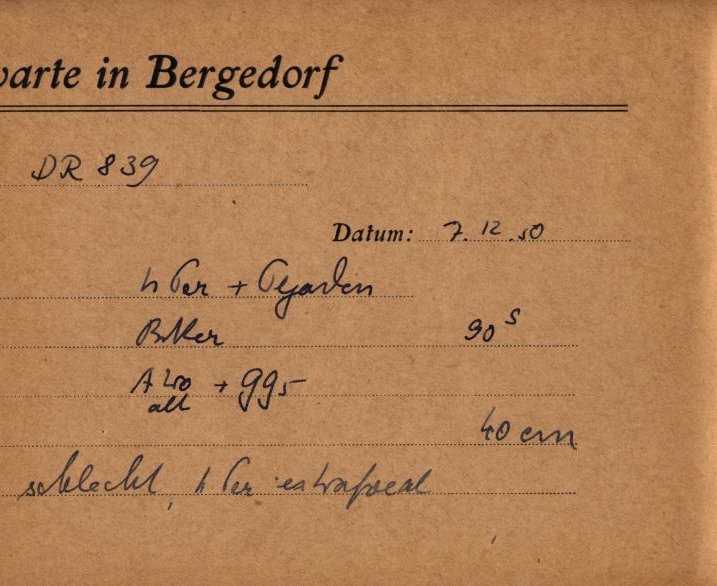 warte in Bergedorf
DR 839
Datum: 7. 12. 50
h Per + Plejaden
90 s
alt + gg5
40 cm
schlecht, h Per extrafocal